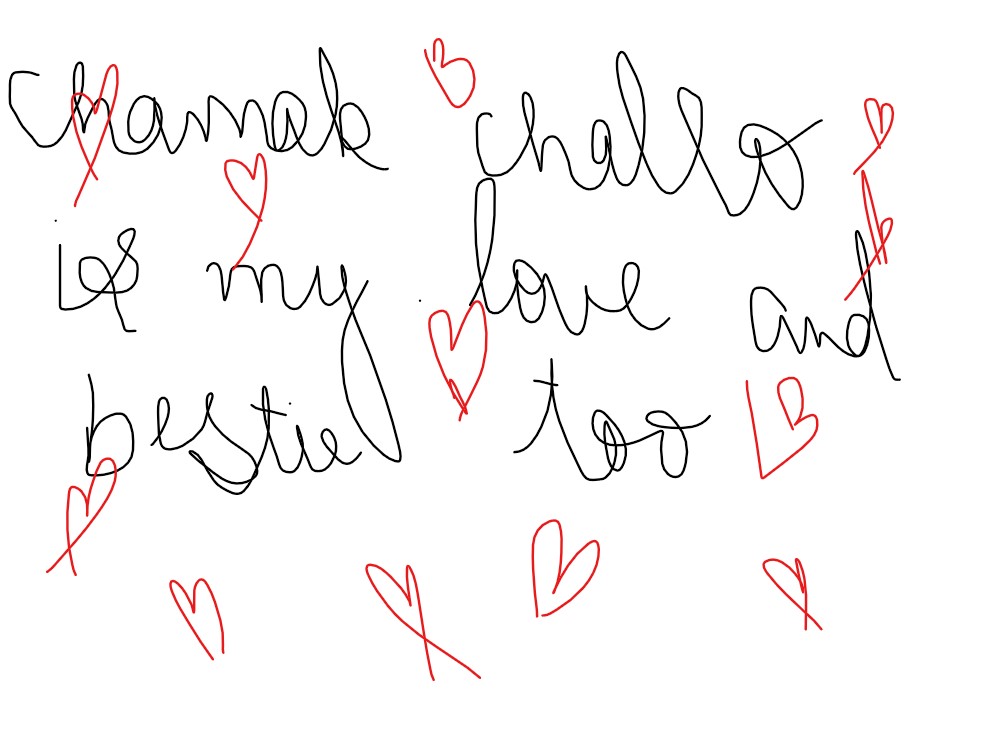 chamak challo
is my love and
bestie too